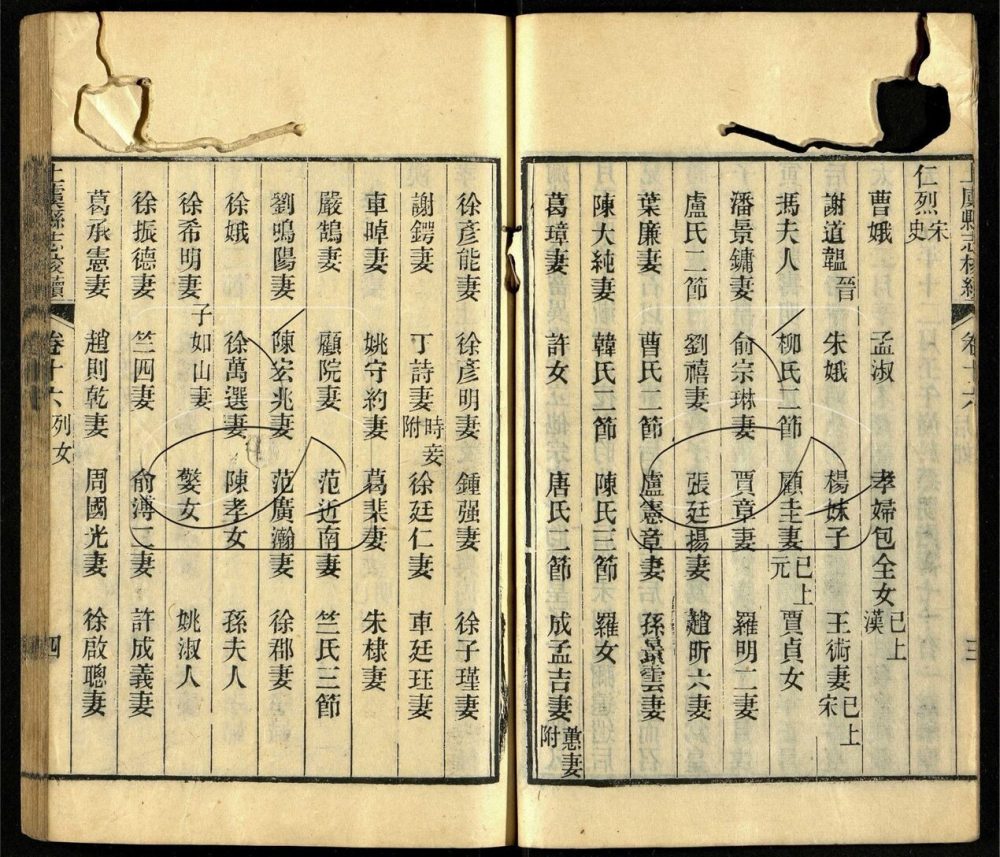 仁烈宋史
曹娥 孟淑 孝婦包全女已上漢
謝道韞晉 朱娥 楊妹子 王術妻已上宋
馮夫人 柳氏二節 顧圭妻已上元 賈貞女
潘景鏞妻 俞宗琳妻 賈章妻 羅明二妻
盧氏二節 劉禧妻 張廷揚妻 趙昕六妻
葉廉妻 曹氏二節 盧憲章妻 孫景雲妻
陳大純妻 韓氏二節 陳氏三節 羅女
葛璋妻 許女 唐氏二節 成孟吉妻蕙妻附
三
徐彥能妻 徐彥明妻 鍾强妻 徐子瑾妻
謝鍔妻 丁詩妻時妾附 徐廷仁妻 車廷玨妻
車晫妻 姚守約妻 葛棐妻 朱棣妻
嚴鵠妻 顧院妻 范近南妻 竺氏三節
劉鳴陽妻 陳宏兆妻 范廣瀚妻 徐郡妻
徐娥 徐萬選妻 陳孝女 孫夫人
徐希明妻 子如山妻 婺女 姚淑人
徐振德妻 竺四妻 俞溥二妻 許成義妻
葛承憲妻 趙則乾妻 周國光妻 徐啟聰妻
上虞縣志校續 卷十六 列女 四